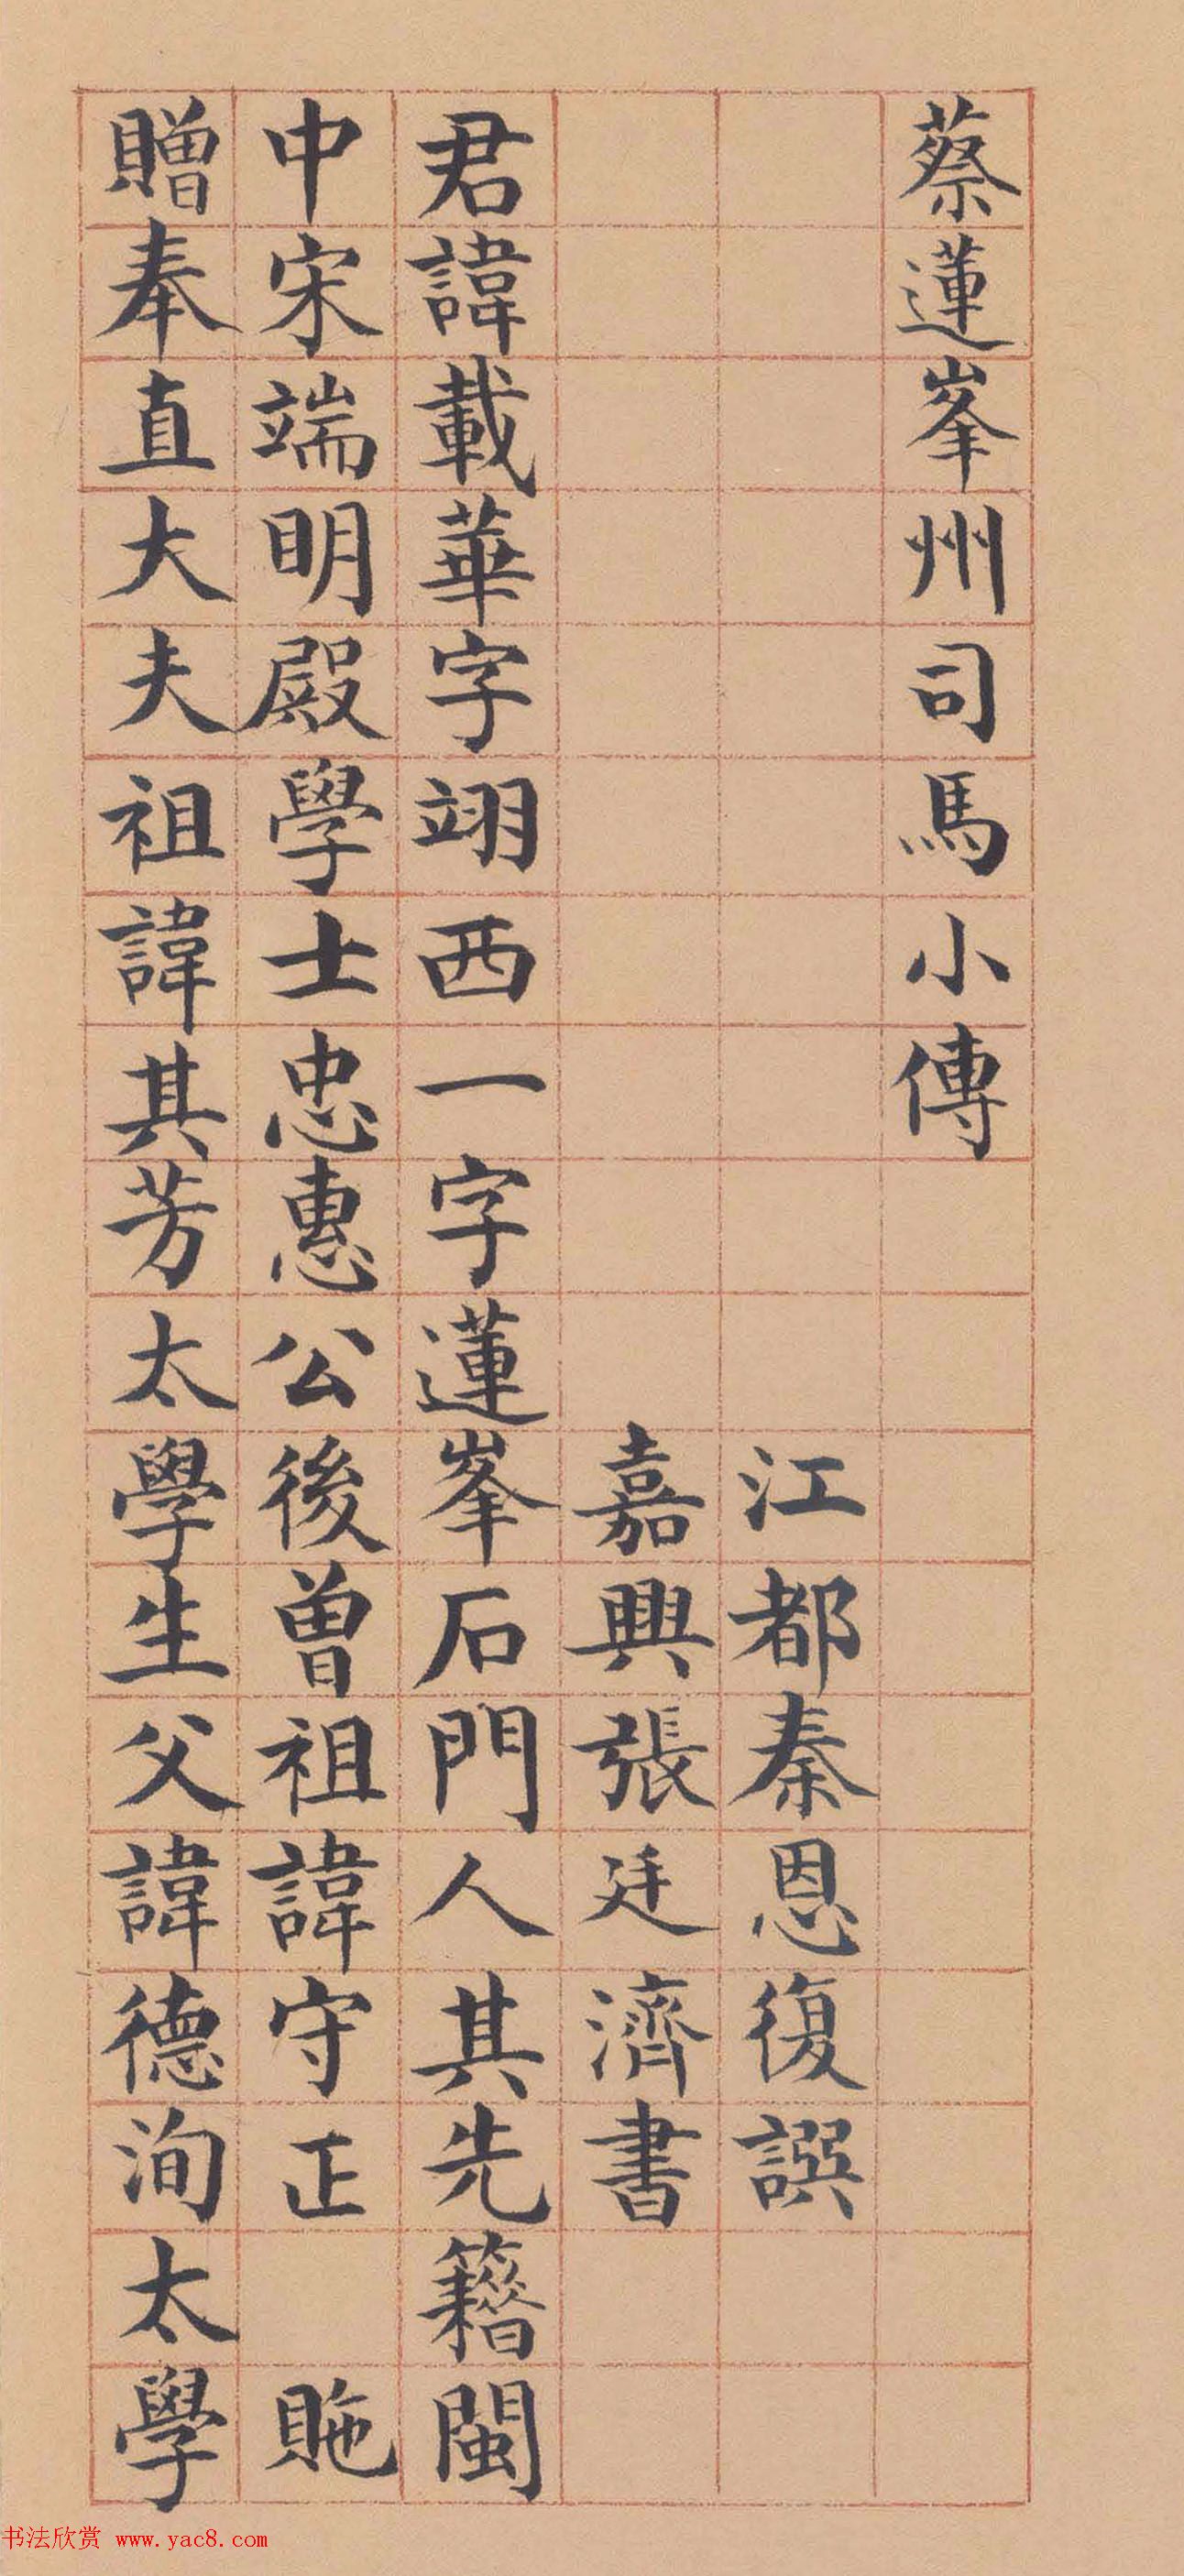 蔡蓮峯州司馬小傳
江都秦恩復譔
嘉興張廷濟書
君諱載華字翊西一字蓮峯石門人其先籍閩
中宋端明殿學士忠惠公後曾祖諱守正 貤
贈奉直大夫祖諱其芳太學生父諱德洵太學
书法欣赏 www.yac8.com